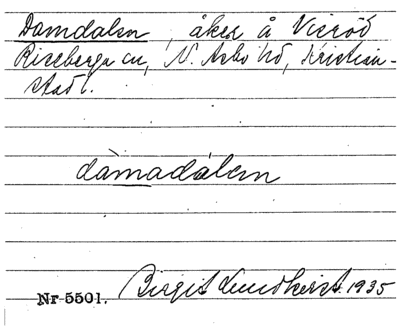 Damdalen, åker å Vieröd
Riseberga sn, N. Åsbo hd, Kristian-
stad l.
dàmadálen
Nr 5501. Birgit Lundkvist 1935